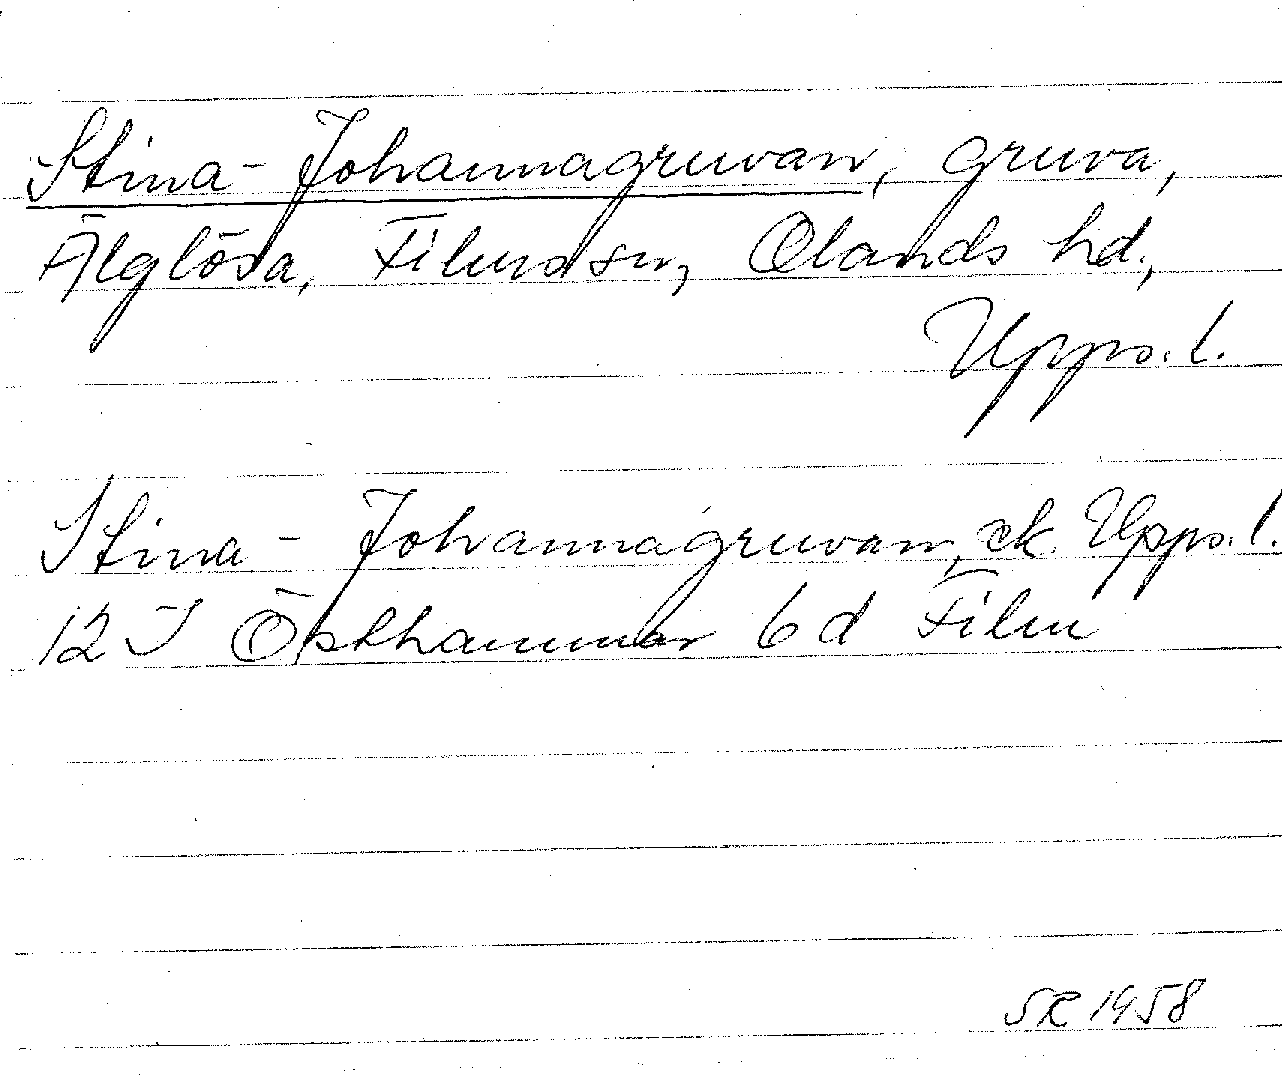 Stina-Johannagruvan, gruva,
Älglösa, Films sn, Olands hd.,
Upps. l.
Stina-Johannagruvan, ek. Upps. l.
12 I Östhammar 6d Film
SR 1958